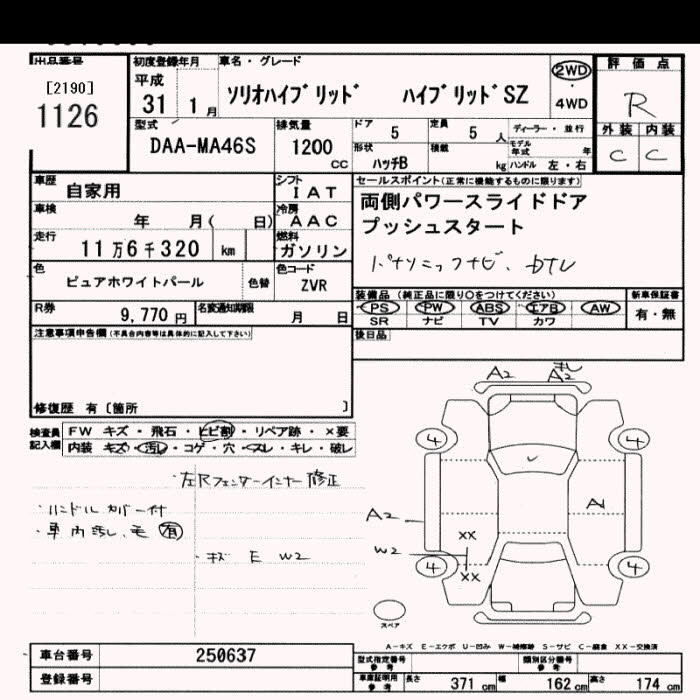 出品番号
[2190]
1126
初度登録年月
平成
31 1月
車名・グレード
ソリオハイブリッド ハイブリッドSZ
2WD
4WD
評価点
R
外装 内装
C C
型式
DAA-MA46S
排気量
1200
cc
ドア 5
定員 5 人
形状
ハッチB
積載
kg
ディーラー・並行
モデル年式 年
ハンドル 左・右
車歴
自家用
シフト
IAT
車検
年 月( 日)
冷房
AAC
走行
11万6千320 km
燃料
ガソリン
色
ピュアホワイトパール
色替
色コード
ZVR
R券
9,770円
名変通知期限
月 日
セールスポイント(正常に機能するものに限ります)
両側パワースライドドア
プッシュスタート
パナソニックナビ、DTV
装備品 (純正品に限り○をつけてください)
PS PW ABS エアB AW
SR ナビ TV カワ
新車保証書
有・無
後日品
注意事項申告欄(不具合内容等は具体的に記入して下さい)
修復歴 有〔箇所 〕
検査員記入欄
FW キズ・飛石・ヒビ割・リペア跡・×要
内装 キズ・汚レ・コゲ・穴・スレ・キレ・破レ
・左Rフェンダーインナー修正
・ハンドルカバー付
・車内汚レ、毛有
・キズ E W2
A2 A2
4 4
A2
A1
XX
W2
XX
4 4
スペア
A-キズ E-エクボ U-凹み W-補修跡 S-サビ C-腐食 XX-交換済
車台番号
250637
登録番号
型式指定番号
参考
類別区分番号
参考
車庫証明用
参考
長さ 371 cm 幅 162 cm 高さ 174 cm